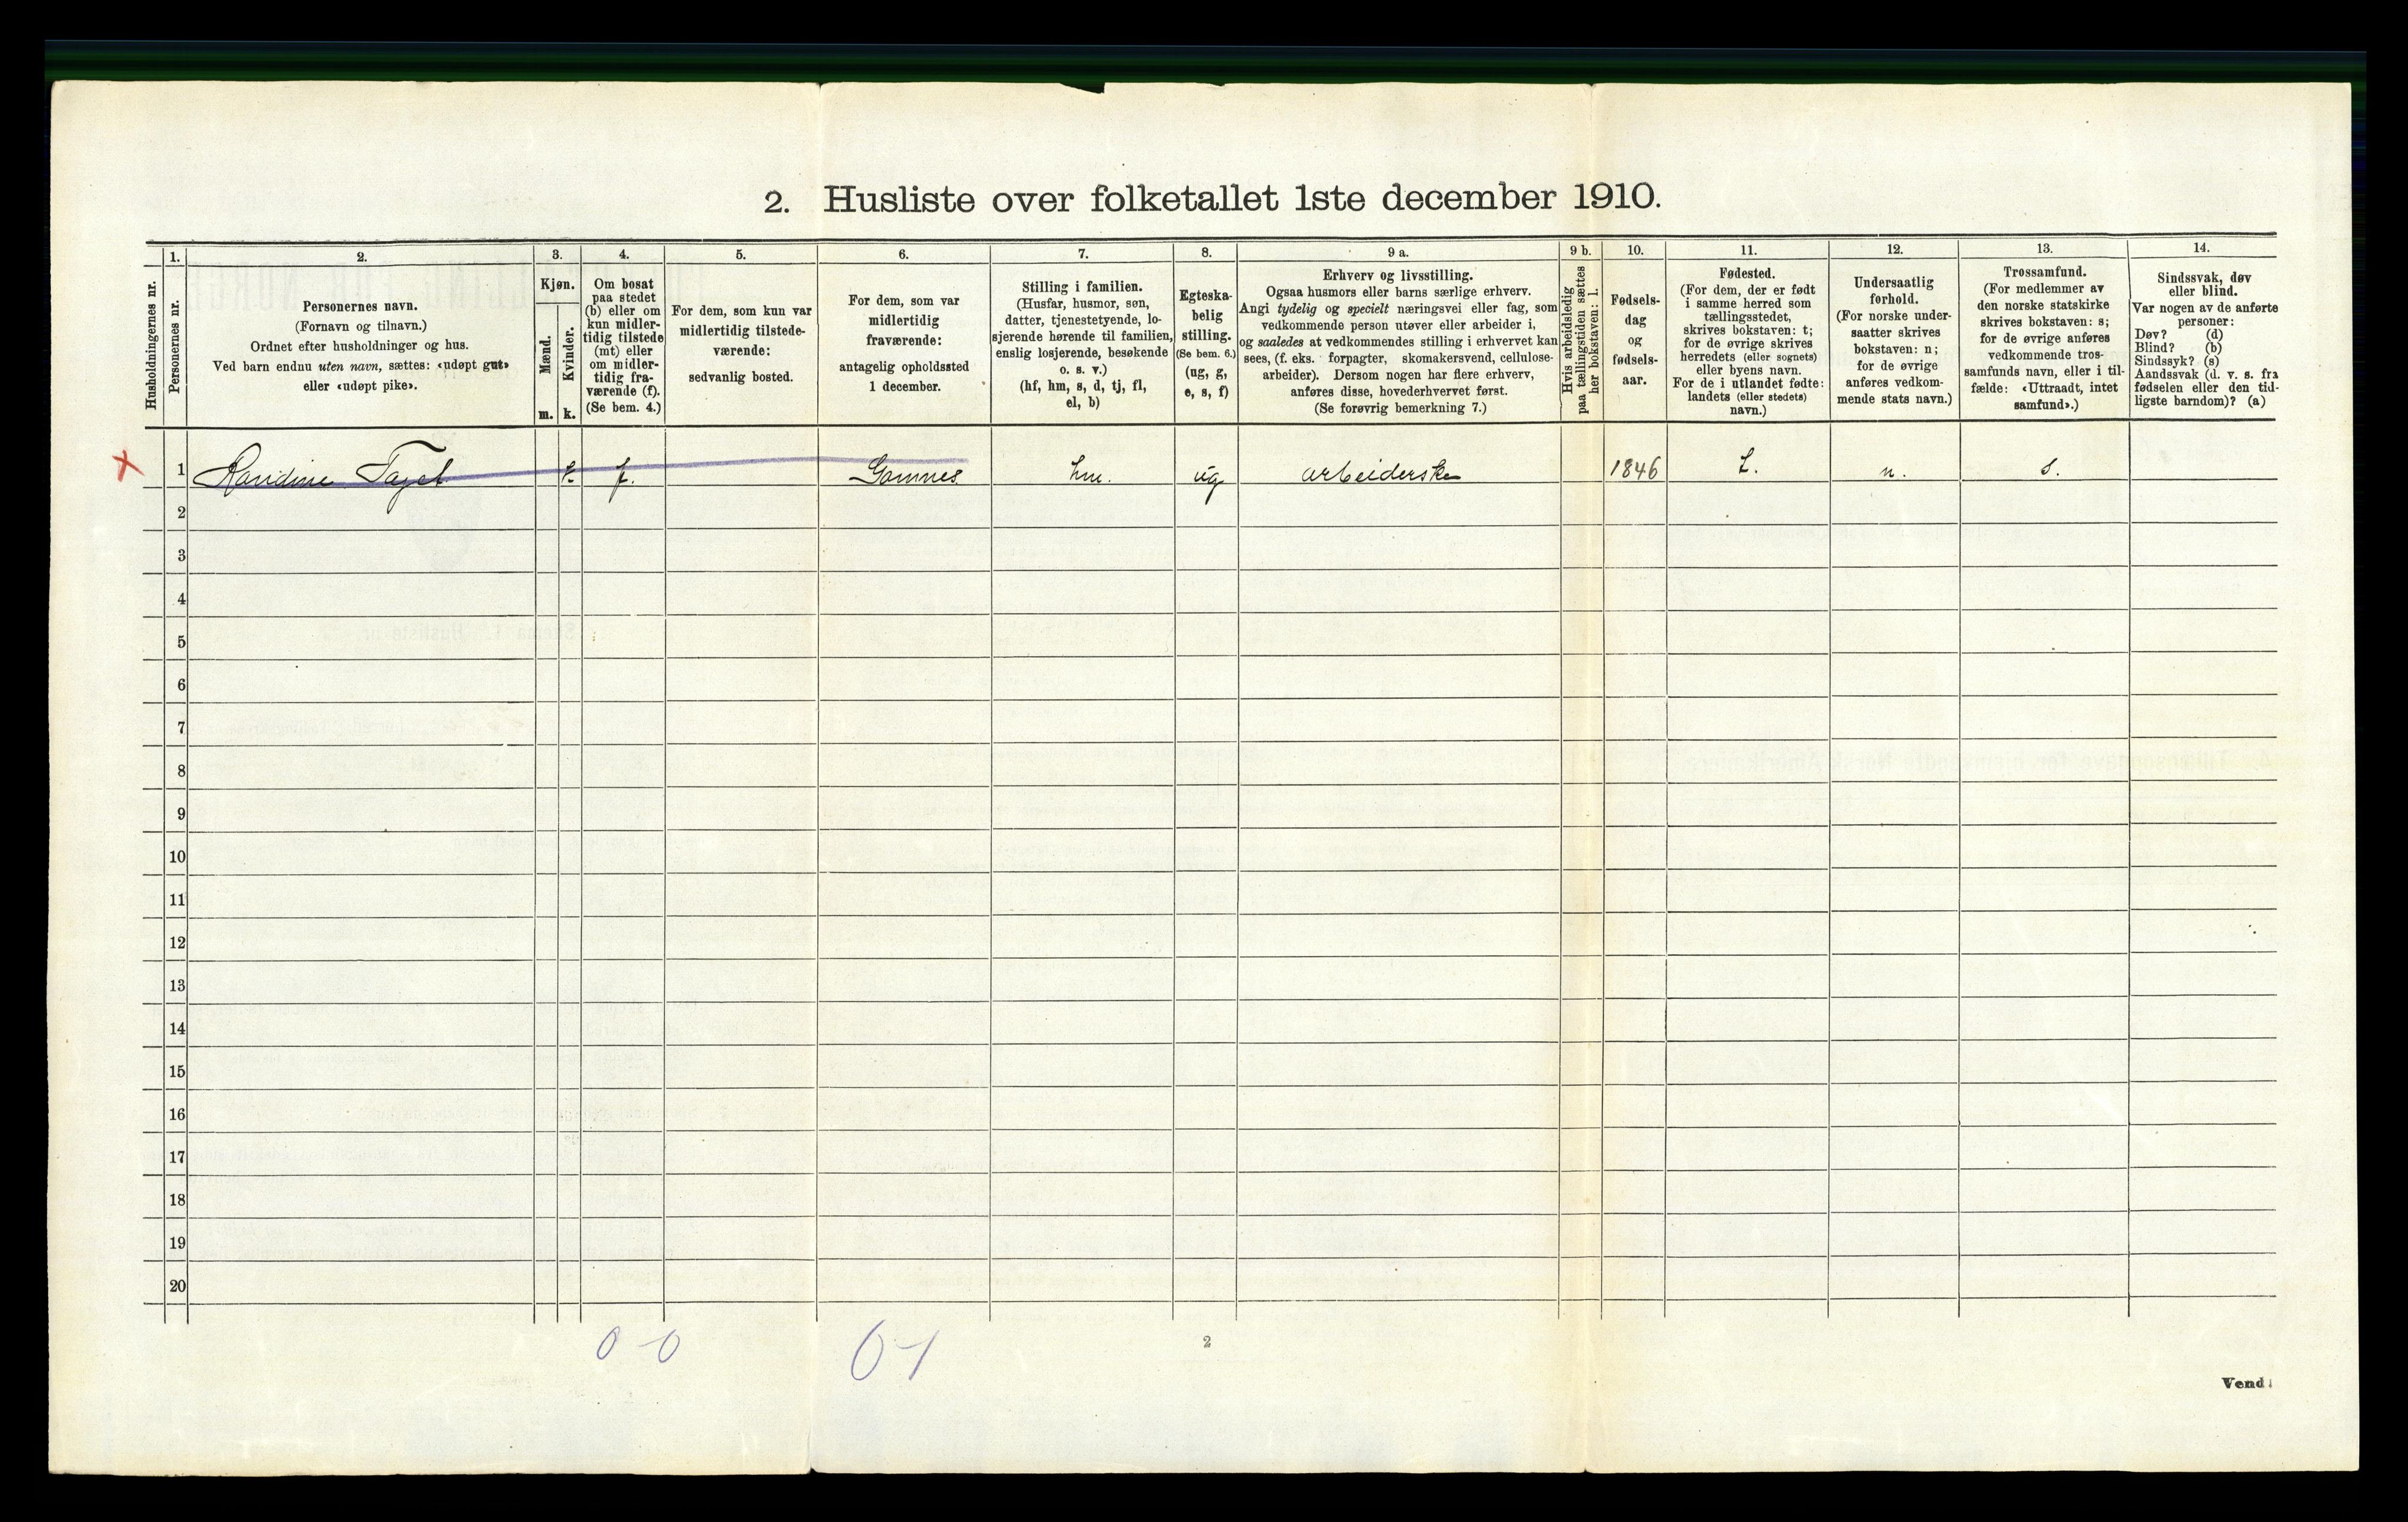 2. Husliste over folketallet 1ste december 1910.
Husholdningernes nr.
1.
Personernes nr.
2.
Personernes navn.
(Fornavn og tilnavn.)
Ordnet efter husholdninger og hus.
Ved barn endnu uten navn, sættes: «udøpt gut»
eller «udøpt pike».
3.
Kjøn.
Mænd.
m.
Kvinder.
k.
4.
Om bosat
paa stedet
(b) eller om
kun midler-
tidig tilstede
(mt) eller
om midler-
tidig fra-
værende (f).
(Se bem. 4.)
5.
For dem, som kun var
midlertidig tilstede-
værende:
sedvanlig bosted.
6.
For dem, som var
midlertidig
fraværende:
antagelig opholdssted
1 december.
7.
Stilling i familien.
(Husfar, husmor, søn,
datter, tjenestetyende, lo-
sjerende hørende til familien,
enslig losjerende, besøkende
o. s. v.)
(hf, hm, s, d, tj, fl,
el, b)
8.
Egteska-
belig
stilling.
(Se bem. 6.)
(ug, g,
e, s, f)
9 a.
Erhverv og livsstilling.
Ogsaa husmors eller barns særlige erhverv.
Angi tydelig og specielt næringsvei eller fag, som
vedkommende person utøver eller arbeider i,
og saaledes at vedkommendes stilling i erhvervet kan
sees, (f. eks. forpagter, skomakersvend, cellulose-
arbeider). Dersom nogen har flere erhverv,
anføres disse, hovederhvervet først.
(Se forøvrig bemerkning 7.)
9 b.
Hvis arbeidsledig
paa tællingstiden sættes
her bokstaven: l.
10.
Fødsels-
dag
og
fødsels-
aar.
11.
Fødested.
(For dem, der er født
i samme herred som
tællingsstedet,
skrives bokstaven: t;
for de øvrige skrives
herredets (eller sognets)
eller byens navn.
For de i utlandet fødte:
landets (eller stedets)
navn.)
12.
Undersaatlig
forhold.
(For norske under-
saatter skrives
bokstaven: n;
for de øvrige
anføres vedkom-
mende stats navn.)
13.
Trossamfund.
(For medlemmer av
den norske statskirke
skrives bokstaven: s;
for de øvrige anføres
vedkommende tros-
samfunds navn, eller i til-
fælde: «Uttraadt, intet
samfund».)
14.
Sindssvak, døv
eller blind.
Var nogen av de anførte
personer:
Døv? (d)
Blind? (b)
Sindssyk? (s)
Aandssvak (d. v. s. fra
fødselen eller den tid-
ligste barndom)? (a)
1 Randine Taget k f. Gomnes hm. ug arbeiderske 1846 t. n. s.
2
3
4
5
6
7
8
9
10
11
12
13
14
15
16
17
18
19
20
0-0 0-1
2
Vend!